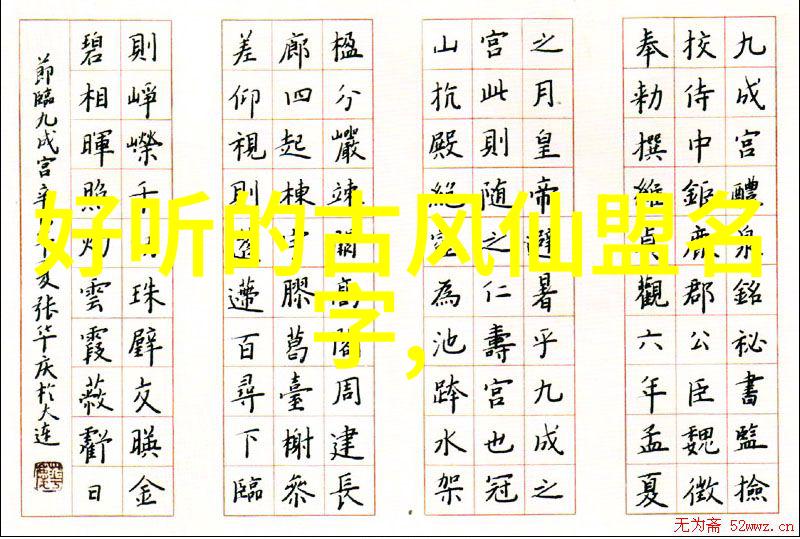 好听的古风仙盟名
字,
九成宮醴泉銘秘書監撿
挍侍中鉅鹿郡公臣魏徵
奉勅撰維貞觀六年孟夏
之月皇帝避暑乎九成之
宮此則随之仁壽宮也冠
山抗殿絕壑為池跨水架
楹分巖竦闕高閣周建長
廊四起棟宇膠葛臺榭叅
差仰視則迢遰百尋下臨
則崢嶸千仞珠璧交暎金
碧相暉照灼雲霞蔽虧日
節臨九成宮辛张华庆於大连
无为斋 52wwz.cn